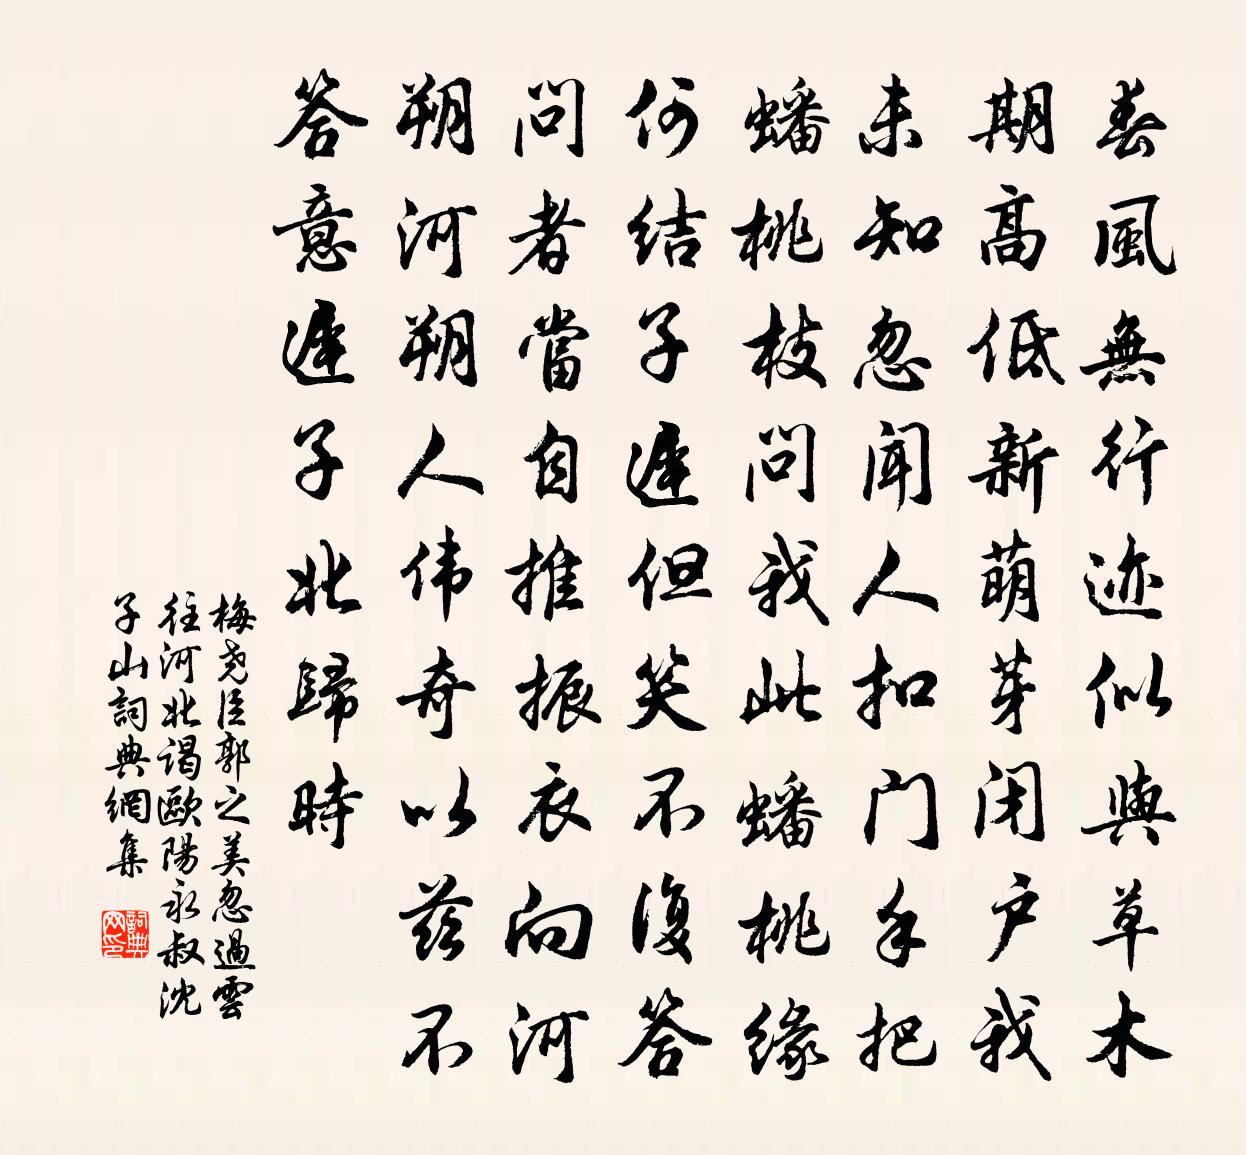 春風無行迹似與草木
期高低新萌芽闭户我
未知忽闻人扣门手把
蟠桃枝問我此蟠桃缘
何结子遲但笑不復答
問者當自推振衣向河
朔河朔人伟奇以兹不
答意遲子北歸時
梅尧臣郭之美忽過雲
往河北谒歐陽永叔沈
子山詞典網集
詞典网印